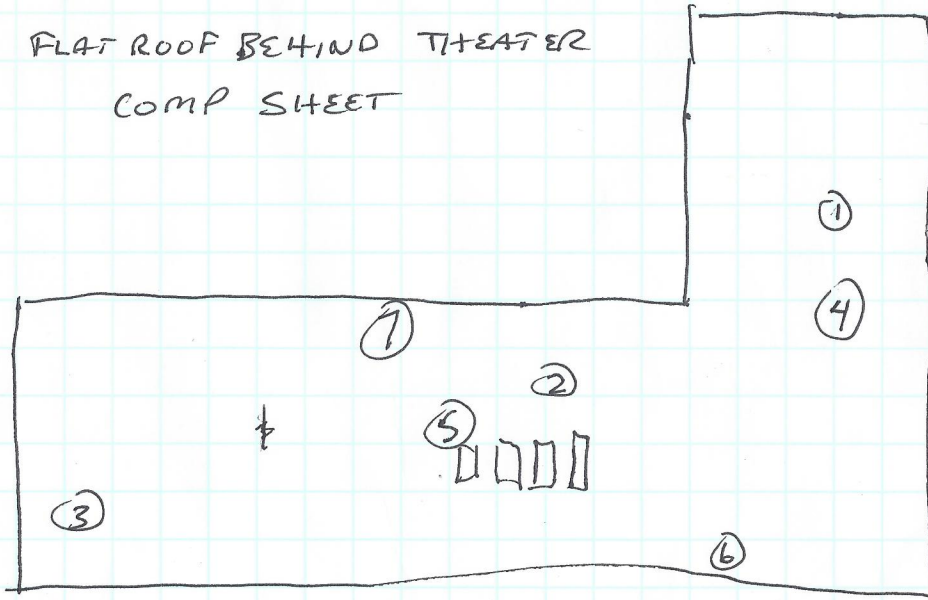 FLAT ROOF BEHIND THEATER
COMP SHEET
1
4
7
2
5
3
6